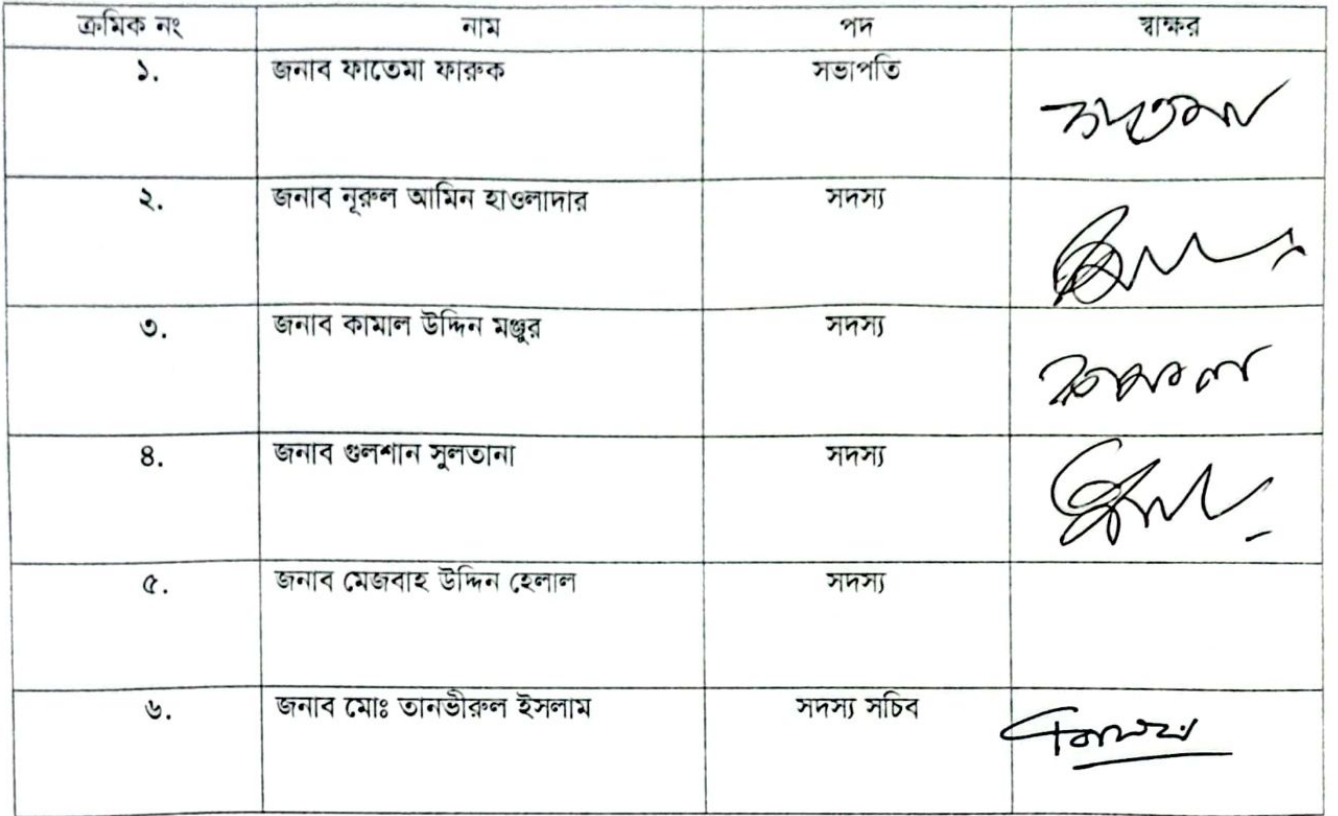 ক্রমিক নং নাম পদ স্বাক্ষর
১. জনাব ফাতেমা ফারুক সভাপতি
ফাতেমা
২. জনাব নূরুল আমিন হাওলাদার সদস্য
৩. জনাব কামাল উদ্দিন মঞ্জুর সদস্য
কামাল
৪. জনাব গুলশান সুলতানা সদস্য
৫. জনাব মেজবাহ উদ্দিন হেলাল সদস্য
৬. জনাব মোঃ তানভীরুল ইসলাম সদস্য সচিব